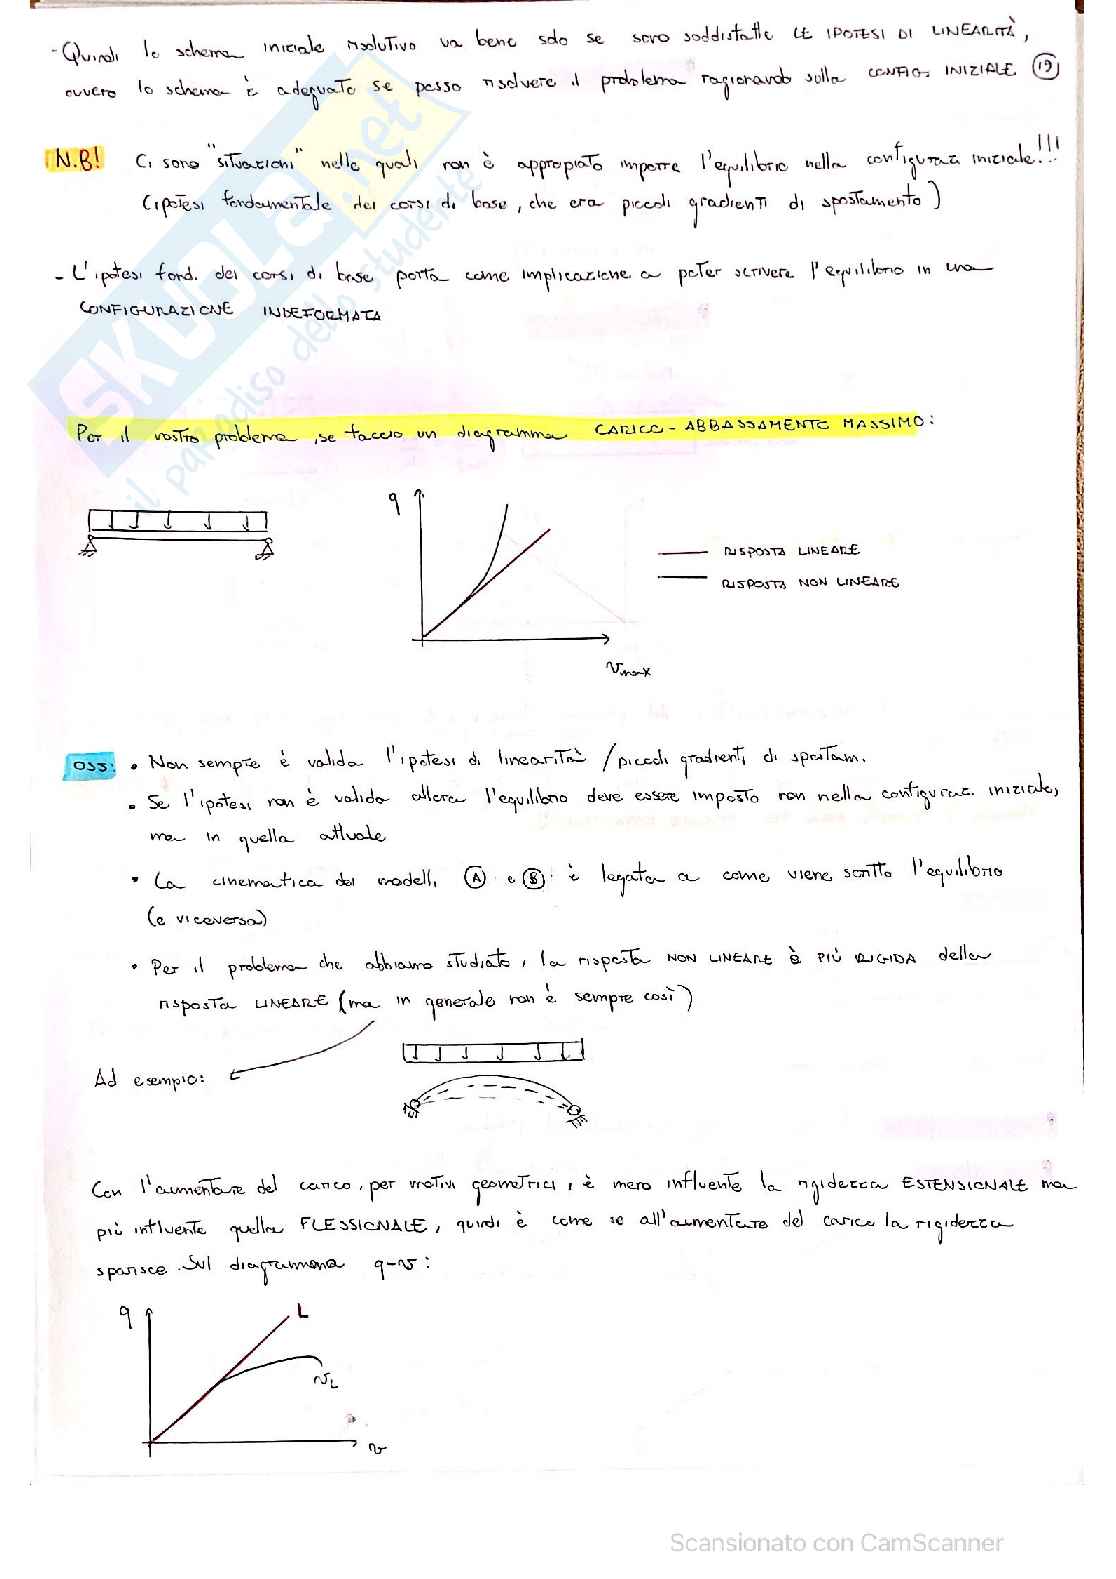 - Quindi lo schema iniziale risolutivo va bene solo se sono soddisfatte LE IPOTESI DI LINEARITÀ,
ovvero lo schema è adeguato se posso risolvere il problema ragionando sulla CONFIG. INIZIALE 19
N.B! Ci sono "situazioni" nelle quali non è appropiato imporre l'equilibrio nella configuraz. iniziale!!!
(ipotesi fondamentale dei corsi di base, che era piccoli gradienti di spostamento)
- L'ipotesi fond. dei corsi di base porta come implicazione a poter scrivere l'equilibrio in una
CONFIGURAZIONE INDEFORMATA
Per il nostro problema, se faccio un diagramma CARICO - ABBASSAMENTO MASSIMO:
q
RISPOSTA LINEARE
RISPOSTA NON LINEARE
vmax
OSS: • Non sempre è valida l'ipotesi di linearità / piccoli gradienti di spostam.
• Se l'ipotesi non è valida allora l'equilibrio deve essere imposto non nella configuraz. iniziale,
ma in quella attuale
• La cinematica dei modelli A e B è legata a come viene scritto l'equilibrio
(e viceversa)
• Per il problema che abbiamo studiato, la risposta NON LINEARE È PIÙ RIGIDA della
risposta LINEARE (ma in generale non è sempre così)
Ad esempio:
Con l'aumentare del carico, per motivi geometrici, è meno influente la rigidezza ESTENSIONALE ma
più influente quella FLESSIONALE, quindi è come se all'aumentare del carico la rigidezza
sparisce. Sul diagramma q-v:
q
L
NL
v
SKUOLA.net
il paradiso dello studente
Scansionato con CamScanner